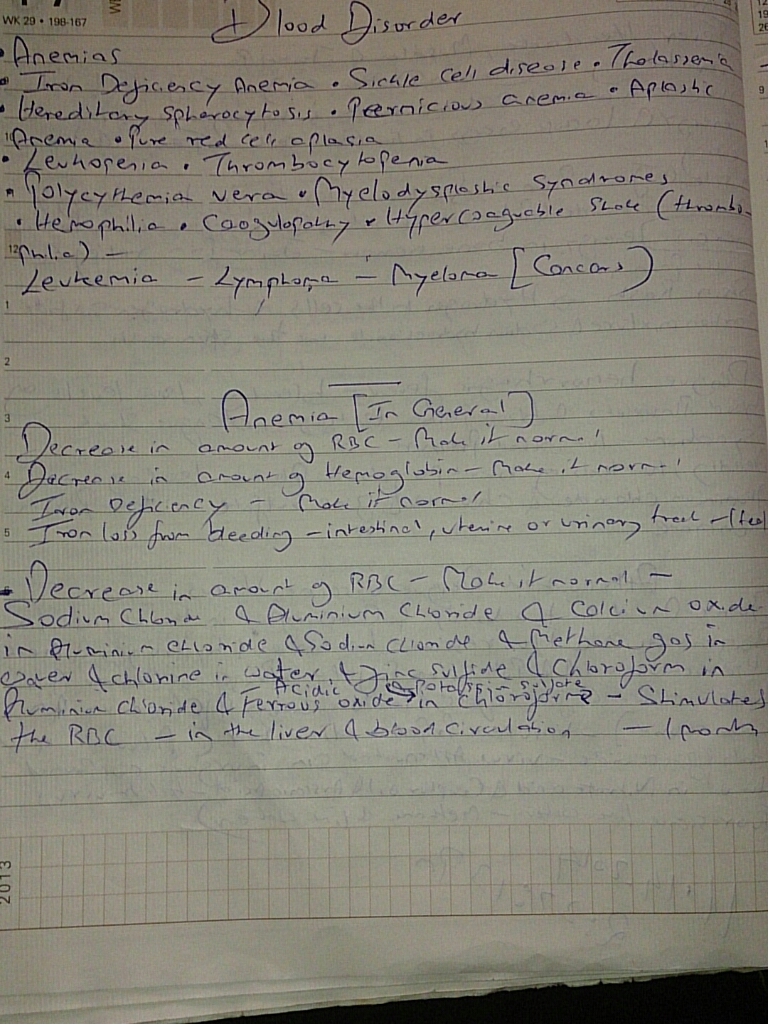 WK 29 • 198-167
Blood Disorder
• Anemias
• Iron Deficiency Anemia • Sickle cell disease • Thalassemia
• Hereditary spherocytosis • Peernicious anemia • Aplastic
Anemia • Pure red cell aplasia
• Leukopenia • Thrombocytopenia
• Polycythemia vera • Myelodysplastic syndromes
• Hemophilia • Coagulopathy • Hypercoaguable state (thrombo-
12
philia) –
Leukemia – Lymphoma – Myeloma [Cancers]
1
2
3
Anemia [In General]
Decrease in amount of RBC – Make it normal
4
Decrease in amount of Hemoglobin – Make it normal
Iron Deficiency – Make it normal
5
Iron loss from bleeding – intestinal, uterine or urinary tract –
Decrease in amount of RBC – Make it normal –
Sodium Chloride & Aluminium Chloride & Calcium oxide
in Aluminium chloride & Sodium chloride & Methane gas in
water & chlorine in water & Zinc sulfide & Chloroform in
Acidic
Aluminium chloride & Ferrous oxide in chloroform – Stimulates
the RBC – in the liver & blood circulation –
2013
9